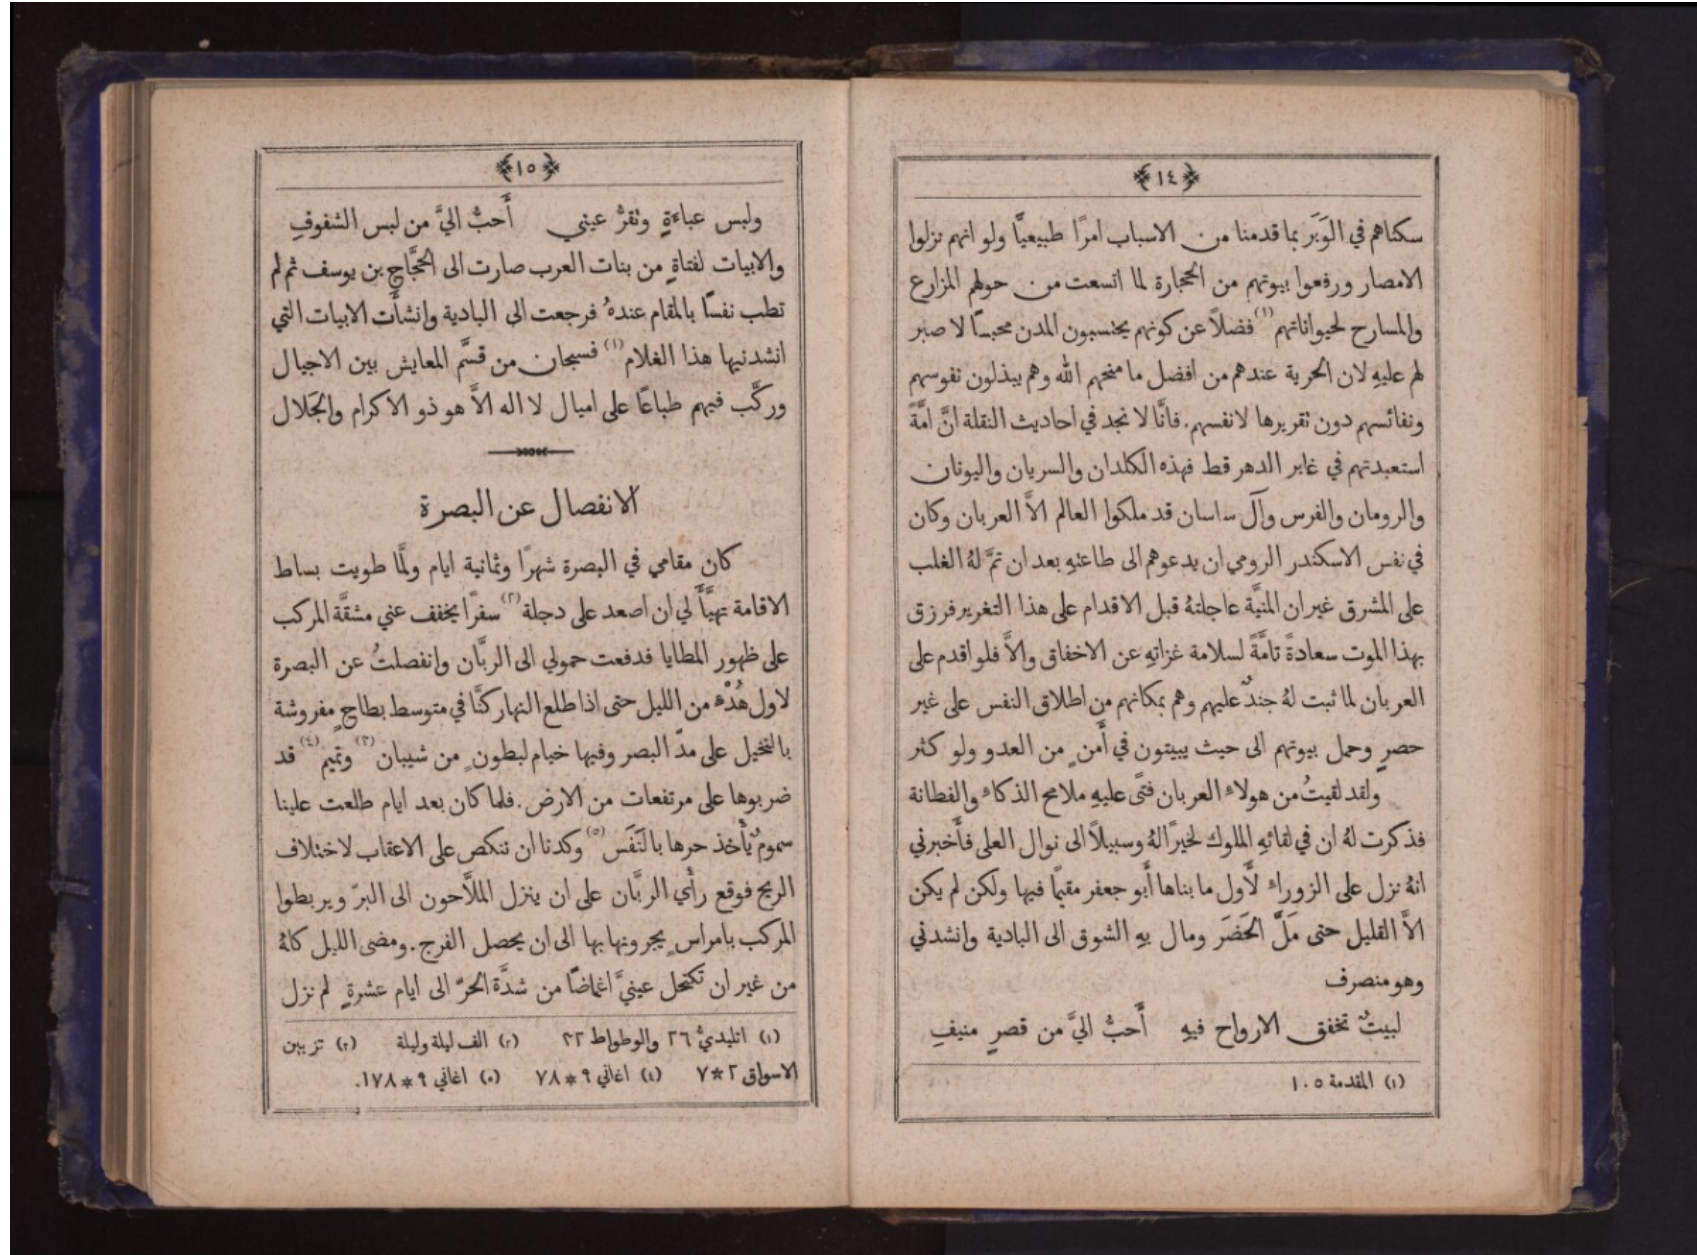 ﴿١٤﴾
سكناهم في الوَبَر بما قدمنا من الاسباب امرًا طبيعيًّا ولو انهم نزلوا
الامصار ورفعوا بيوتهم من الحجارة لما اتسعت من حولهم المزارع
والمسارح لحيواناتهم (١) فضلاً عن كونهم يحتسبون المدن محبسًا لا صبر
لهم عليهِ لان الحرية عندهم من افضل ما منحهم الله وهم يبذلون نفوسهم
ونفائسهم دون تقريرها لانفسهم. فانَّا لا نجد في احاديث النقلة انَّ امَّةً
استعبدتهم في غابر الدهر قط فهذه الكلدان والسريان واليونان
والرومان والفرس وآل ساسان قد ملكوا العالم الاَّ العربان وكان
في نفس الاسكندر الرومي ان يدعوهم الى طاعتهِ بعد ان تمَّ لهُ الغلب
على المشرق غير ان المنيَّة عاجلتهُ قبل الاقدام على هذا التغرير فرزق
بهذا الموت سعادةً تامَّةً لسلامة غزاتهِ عن الاخفاق والاَّ فلو اقدم على
العربان لما ثبت لهُ جندٌ عليهم وهم بمكانهم من اطلاق النفس على غير
حصرٍ وحمل بيوتهم الى حيث يبيتون في أَمنٍ من العدو ولو كثر
ولقد لقيتُ من هولاءِ العربان فتًى عليهِ ملامح الذكاءِ والفطانة
فذكرت لهُ ان في لقائهِ الملوك لخيرًا لهُ وسبيلاً الى نوال العلى فأَخبرني
انهُ نزل على الزوراءِ لأَول ما بناها أَبو جعفر مقيمًا فيها ولكن لم يكن
الاَّ القليل حتى مَلَّ الحَضَرَ ومال بهِ الشوق الى البادية وانشدني
وهو منصرف
لبيتٌ تخفق الارواح فيهِ أَحبُّ اليَّ من قصرٍ منيفِ
(١) المقدمة ١٠٥
﴿١٥﴾
ولبس عباءَةٍ وتقرُّ عيني أَحبُّ اليَّ من لبس الشفوفِ
والابيات لفتاةٍ من بنات العرب صارت الى الحَجَّاج بن يوسف ثم لم
تطب نفسًا بالمقام عندهُ فرجعت الى البادية وانشأَت الابيات التي
انشدنيها هذا الغلام (١) فسبحان من قسَّم المعايش بين الاجيال
وركَّب فيهم طباعًا على اميال لا اله الاَّ هو ذو الاكرام والجَلال
الانفصال عن البصرة
كان مقامي في البصرة شهرًا وثمانية ايام ولمَّا طويت بساط
الاقامة تهيَّأَ لي ان اصعد على دجلة (٢) سفرًا يخفف عني مشقَّة المركب
على ظهور المطايا فدفعت حمولي الى الربَّان وانفصلتُ عن البصرة
لاول هُدْءٍ من الليل حتى اذا طلع النهار كنَّا في متوسط بطاحٍ مفروشة
بالنخيل على مدّ البصر وفيها خيام لبطونٍ من شيبان (٣) وتميم (٤) قد
ضربوها على مرتفعات من الارض. فلما كان بعد ايام طلعت علينا
سمومٌ يأْخذ حرها بالنَفَس (٥) وكدنا ان ننكص على الاعقاب لاختلاف
الريح فوقع رأْي الربَّان على ان ينزل الملاَّحون الى البرّ ويربطوا
المركب بامراسٍ يجرونها بها الى ان يحصل الفرج. ومضى الليل كلهُ
من غير ان تكتحل عينيَّ اغماضًا من شدَّة الحرّ الى ايام عشرةٍ لم نزل
(١) اتليديّ ٢٦ والوطواط ٢٢ (٢) الف ليلة وليلة (٣) تزيين
الاسواق ٢*٧ (٤) اغاني ٩*٧٨ (٥) اغاني ٩*١٧٨.